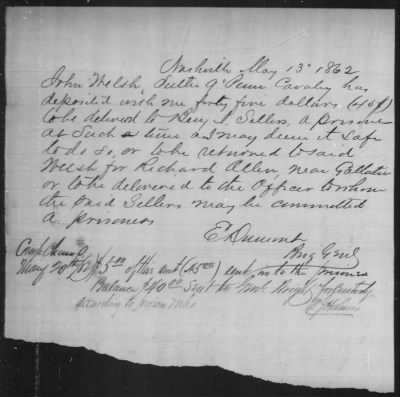 Nashville May 13th 1862
John Welsh, Sutler 9" Penn Cavalry has
deposit'd with me forty five dollars (45$)
to be delivered to Benj. S. Sellers, a prisoner
at such a time as I may deem it safe
to do so, or to be returned to said
Welsh for Richard Allen, near Gallatin
or to be delivered to the Officer to whom
the said Sellers may be committed
a prisoner
E Dumont
Brig Genl
Camp Chase O.
May 20th /62 $5.00 of this amt ($45.00) sent in to the prisoner
Balance $40.00 sent to for Custody
according to prison rules